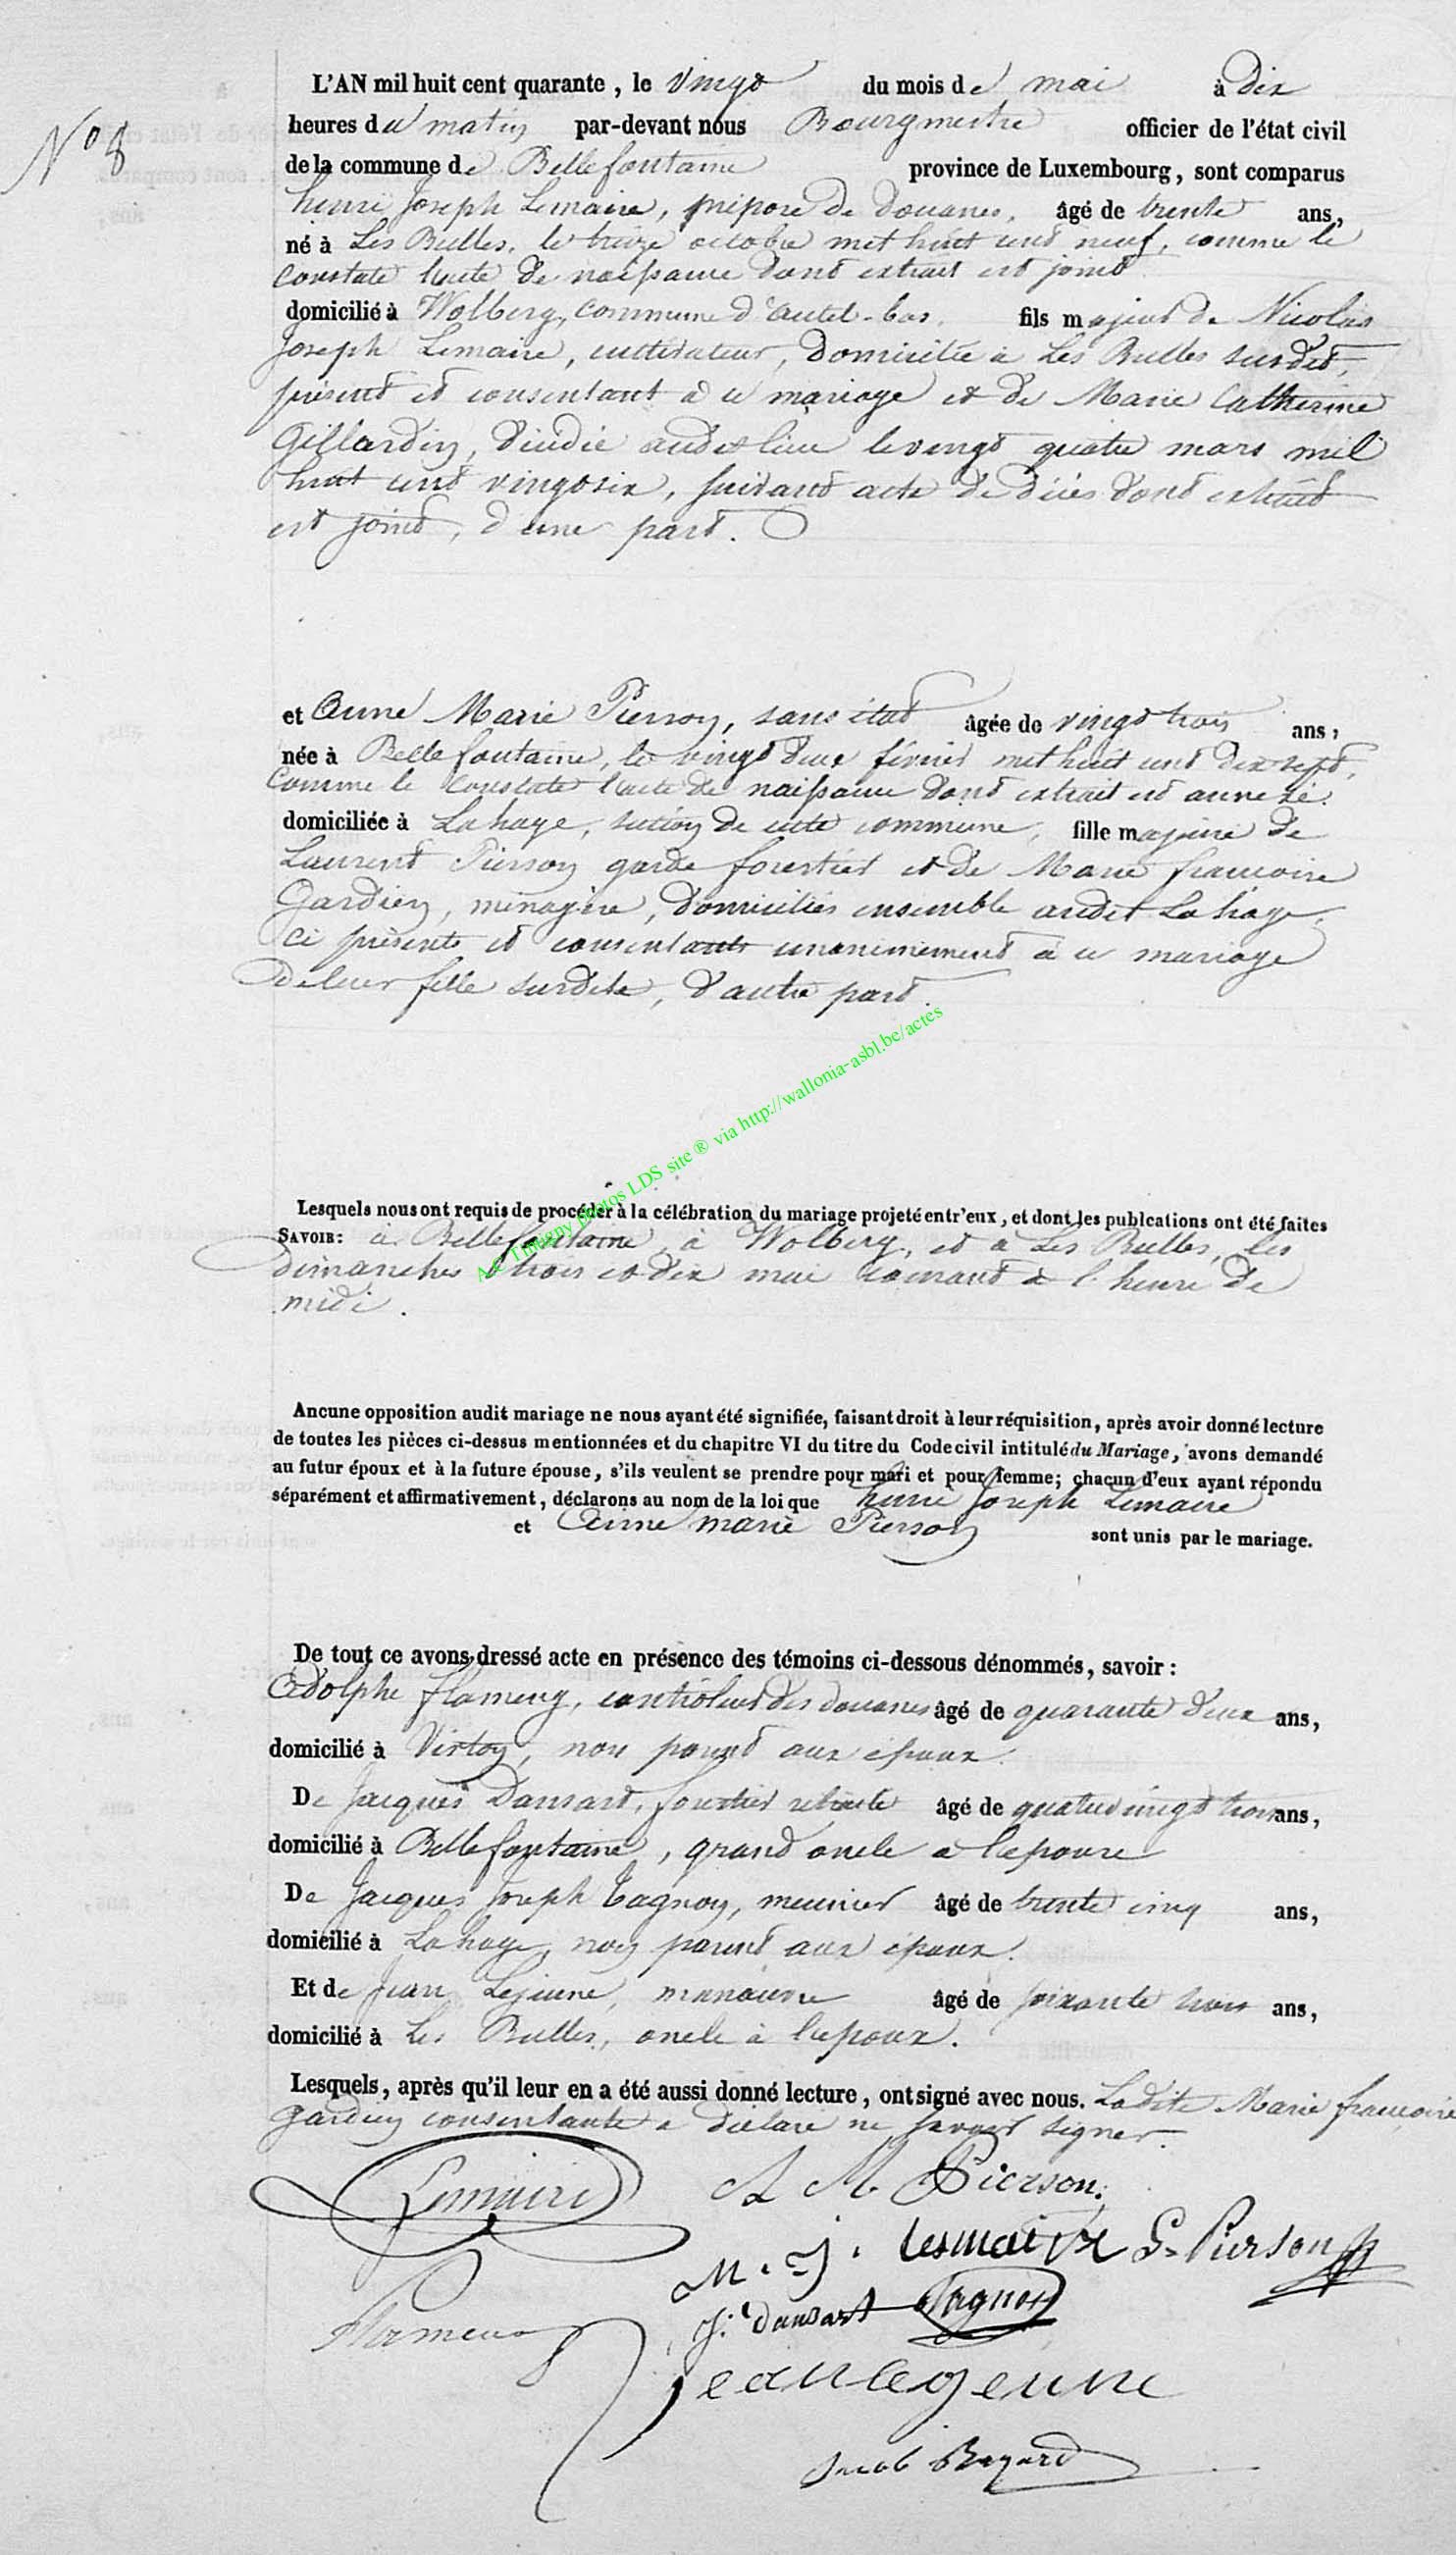 L'AN mil huit cent quarante, le vingt du mois de mai à dix
N° 8
heures du matin par-devant nous Bourgmestre officier de l'état civil
de la commune de Bellefontaine province de Luxembourg, sont comparus
henri Joseph Lemaire, préposé de douanes, âgé de trente ans,
né à Les Bulles, le treize octobre mil huit cent neuf, comme le
constate l'acte de naissance dont extrait est joint
domicilié à Wolberg, commune d'autel-bas, fils majeur de Nicolas
Joseph Lemaire, cultivateur, domicilié à Les Bulles surdit,
présent et consentant à ce mariage et de Marie Catherine
Gillardin, décédée audit lieu le vingt quatre mars mil
huit cent vingt six, suivant acte de décès dont extrait
est joint, d'une part.
et Anne Marie Pierson, sans état âgée de vingt trois ans,
née à Bellefontaine, le vingt deux février mil huit cent dix sept,
comme le constate l'acte de naissance dont extrait est annexé.
domiciliée à Lahage, section de cette commune, fille majeure de
Laurent Pierson garde forestier et de Marie françoise
Gardien, ménagère, domiciliés ensemble audit Lahage,
ci présents et consentants unanimement à ce mariage
de leur fille surdite, d'autre part.
A.E Tintigny photos LDS site ® via http://wallonia-asbl.be/actes
Lesquels nous ont requis de procéder à la célébration du mariage projeté entr'eux, et dont les publcations ont été faites
SAVOIR: à Bellefontaine, à Wolberg, et à Les Bulles, les
dimanches trois et dix mai courant à l'heure de
midi.
Aucune opposition audit mariage ne nous ayant été signifiée, faisant droit à leur réquisition, après avoir donné lecture
de toutes les pièces ci-dessus mentionnées et du chapitre VI du titre du Code civil intitulé du Mariage, avons demandé
au futur époux et à la future épouse, s'ils veulent se prendre pour mari et pour femme; chacun d'eux ayant répondu
séparément et affirmativement, déclarons au nom de la loi que henri Joseph Lemaire
et Anne marie Pierson sont unis par le mariage.
De tout ce avons dressé acte en présence des témoins ci-dessous dénommés, savoir:
Adolphe flameng, contrôleur des douanes âgé de quarante deux ans,
domicilié à Virton, non parent aux époux.
De Jacques Dansart, forestier retraité âgé de quatre vingt trois ans,
domicilié à Bellefontaine, grand oncle a l'épouse
De Jacques Joseph Tagnon, meunier âgé de trente cinq ans,
domicilié à Lahage, non parent aux époux.
Et de Jean Lejeune, manœuvre âgé de soixante trois ans,
domicilié à Les Bulles, oncle à l'époux.
Lesquels, après qu'il leur en a été aussi donné lecture, ont signé avec nous. Ladite Marie françoise
gardien consentante a déclaré ne savoir signer.
Lemaire A M Pierson
M. J. Lesmaire L. Pierson
Flameng J. dansart Tagnon
Jean legeune
Jacob Bayard